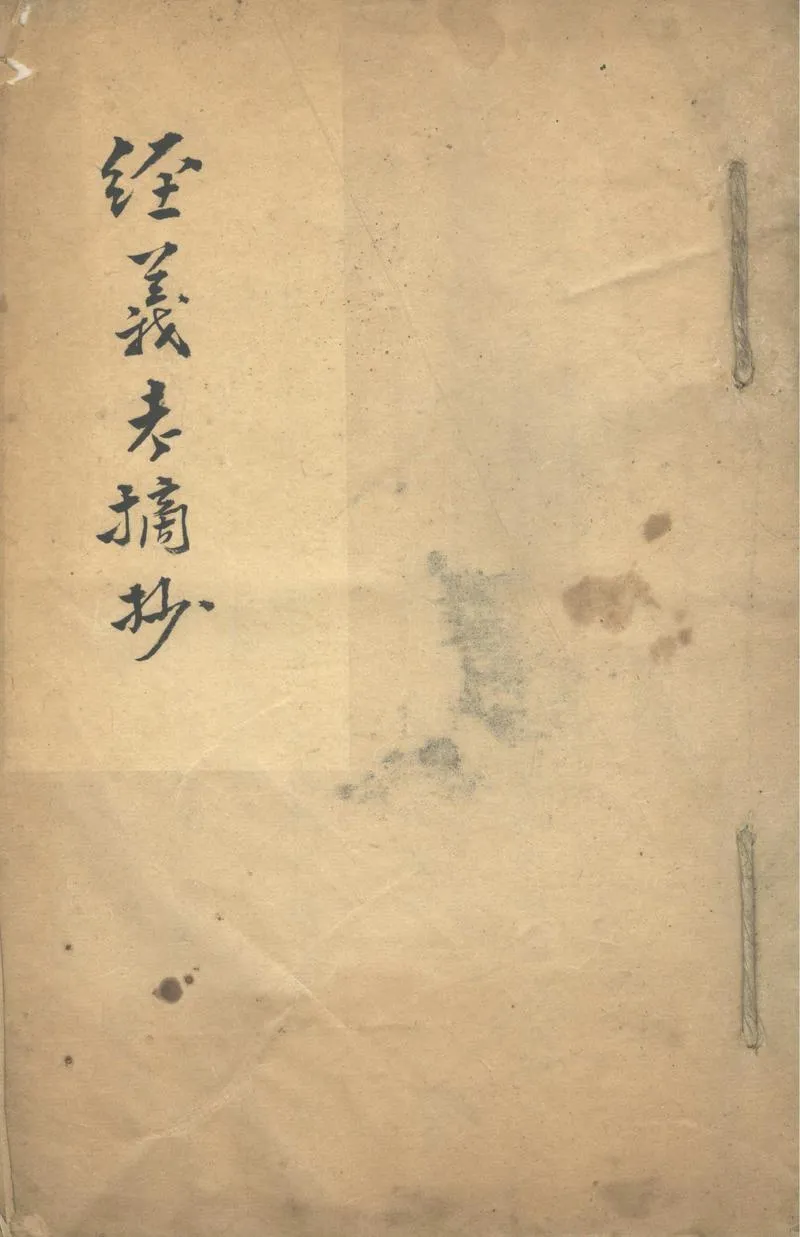 经義考摘抄